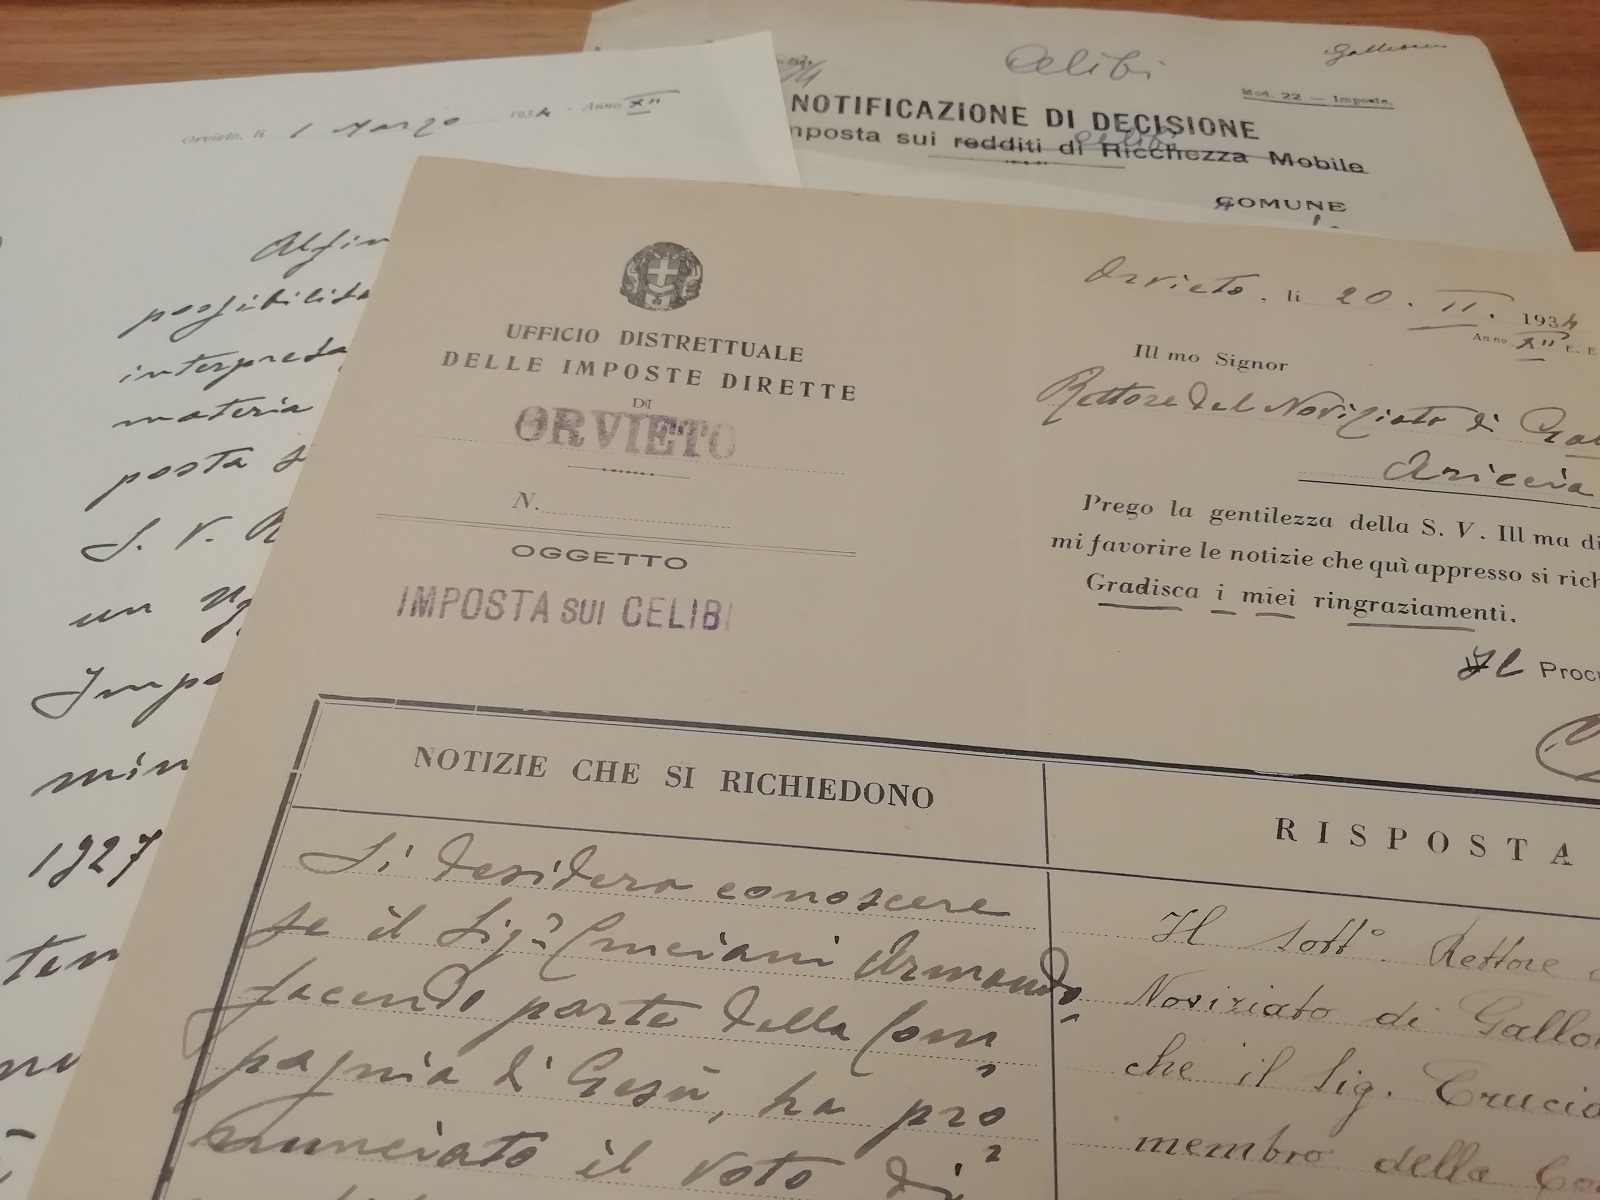 Orvieto, li 1 Marzo 1934 - Anno XII
possibilità
interpreta
materia
posta s
S. V. R
un
Impo
min
1927
ten
Celibi
Mod. 22 — Imposte.
NOTIFICAZIONE DI DECISIONE
mposta sui redditi di Ricchezza Mobile
celibi
COMUNE
UFFICIO DISTRETTUALE
DELLE IMPOSTE DIRETTE
DI
ORVIETO
N.
OGGETTO
IMPOSTA SUI CELIBI
Orvieto, li 20. II. 1934
Anno XII E. F
Ill mo Signor
Rettore del Noviziato di Gal
Ariccia
Prego la gentilezza della S. V. Ill ma di
mi favorire le notizie che quì appresso si rich
Gradisca i miei ringraziamenti.
Il Proc
NOTIZIE CHE SI RICHIEDONO
Si desidera conoscere
se il Sig. Cruciani Armando,
facendo parte della Com
pagnia di Gesù, ha pro
nunciato il voto di
RISPOSTA
Il sott° Rettore
Noviziato di Gallo
che il Sig. Crucia
membro della Co